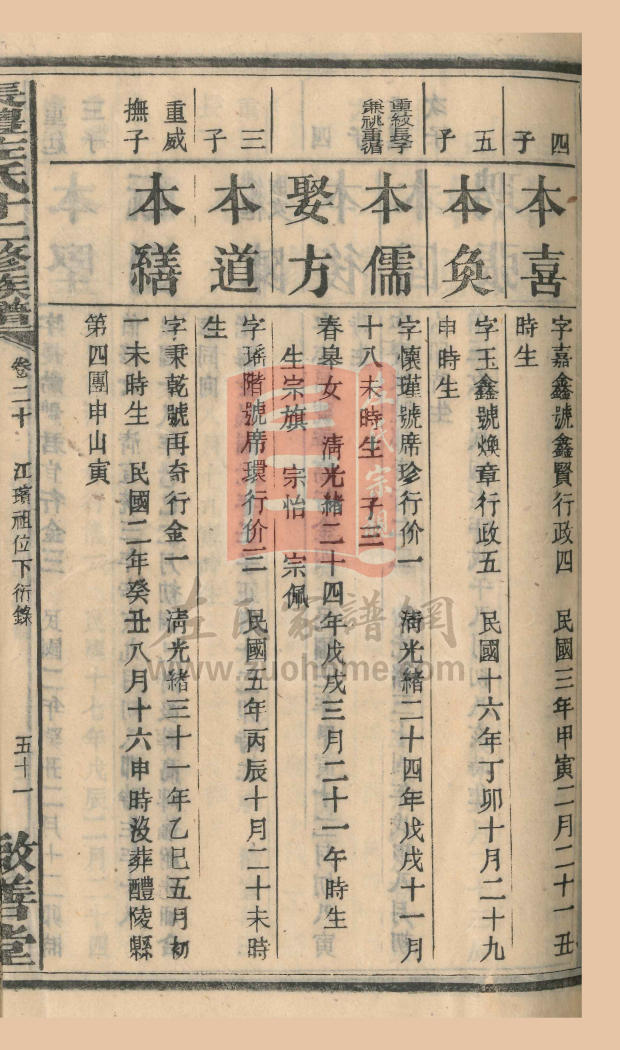 四子
本喜
字嘉鑫號鑫賢行政四　民國三年甲寅二月二十一丑
時生
五子
本奐
字玉鑫號煥章行政五　民國十六年丁卯十月二十九
申時生
重紋長子
兼祧重循
本儒
字懷瑾號席珍行价一　清光緒二十四年戊戌十一月
十八未時生　子三
娶方
春皋女　清光緒二十四年戊戌三月二十一午時生
生宗旗　宗怡　宗佩
三子
本道
字瑤階號席環行价三　民國五年丙辰十月二十未時
生
重威
撫子
本繕
字秉乾號再奇行金一　清光緒三十一年乙巳五月初
一未時生　民國二年癸丑八月十六申時沒葬醴陵縣
第四團申山寅
長醴左氏十二修族譜
卷二十　江瓆祖位下衍錄
五十一
啟善堂
左氏宗親
左氏家譜網
www.zuohome.com